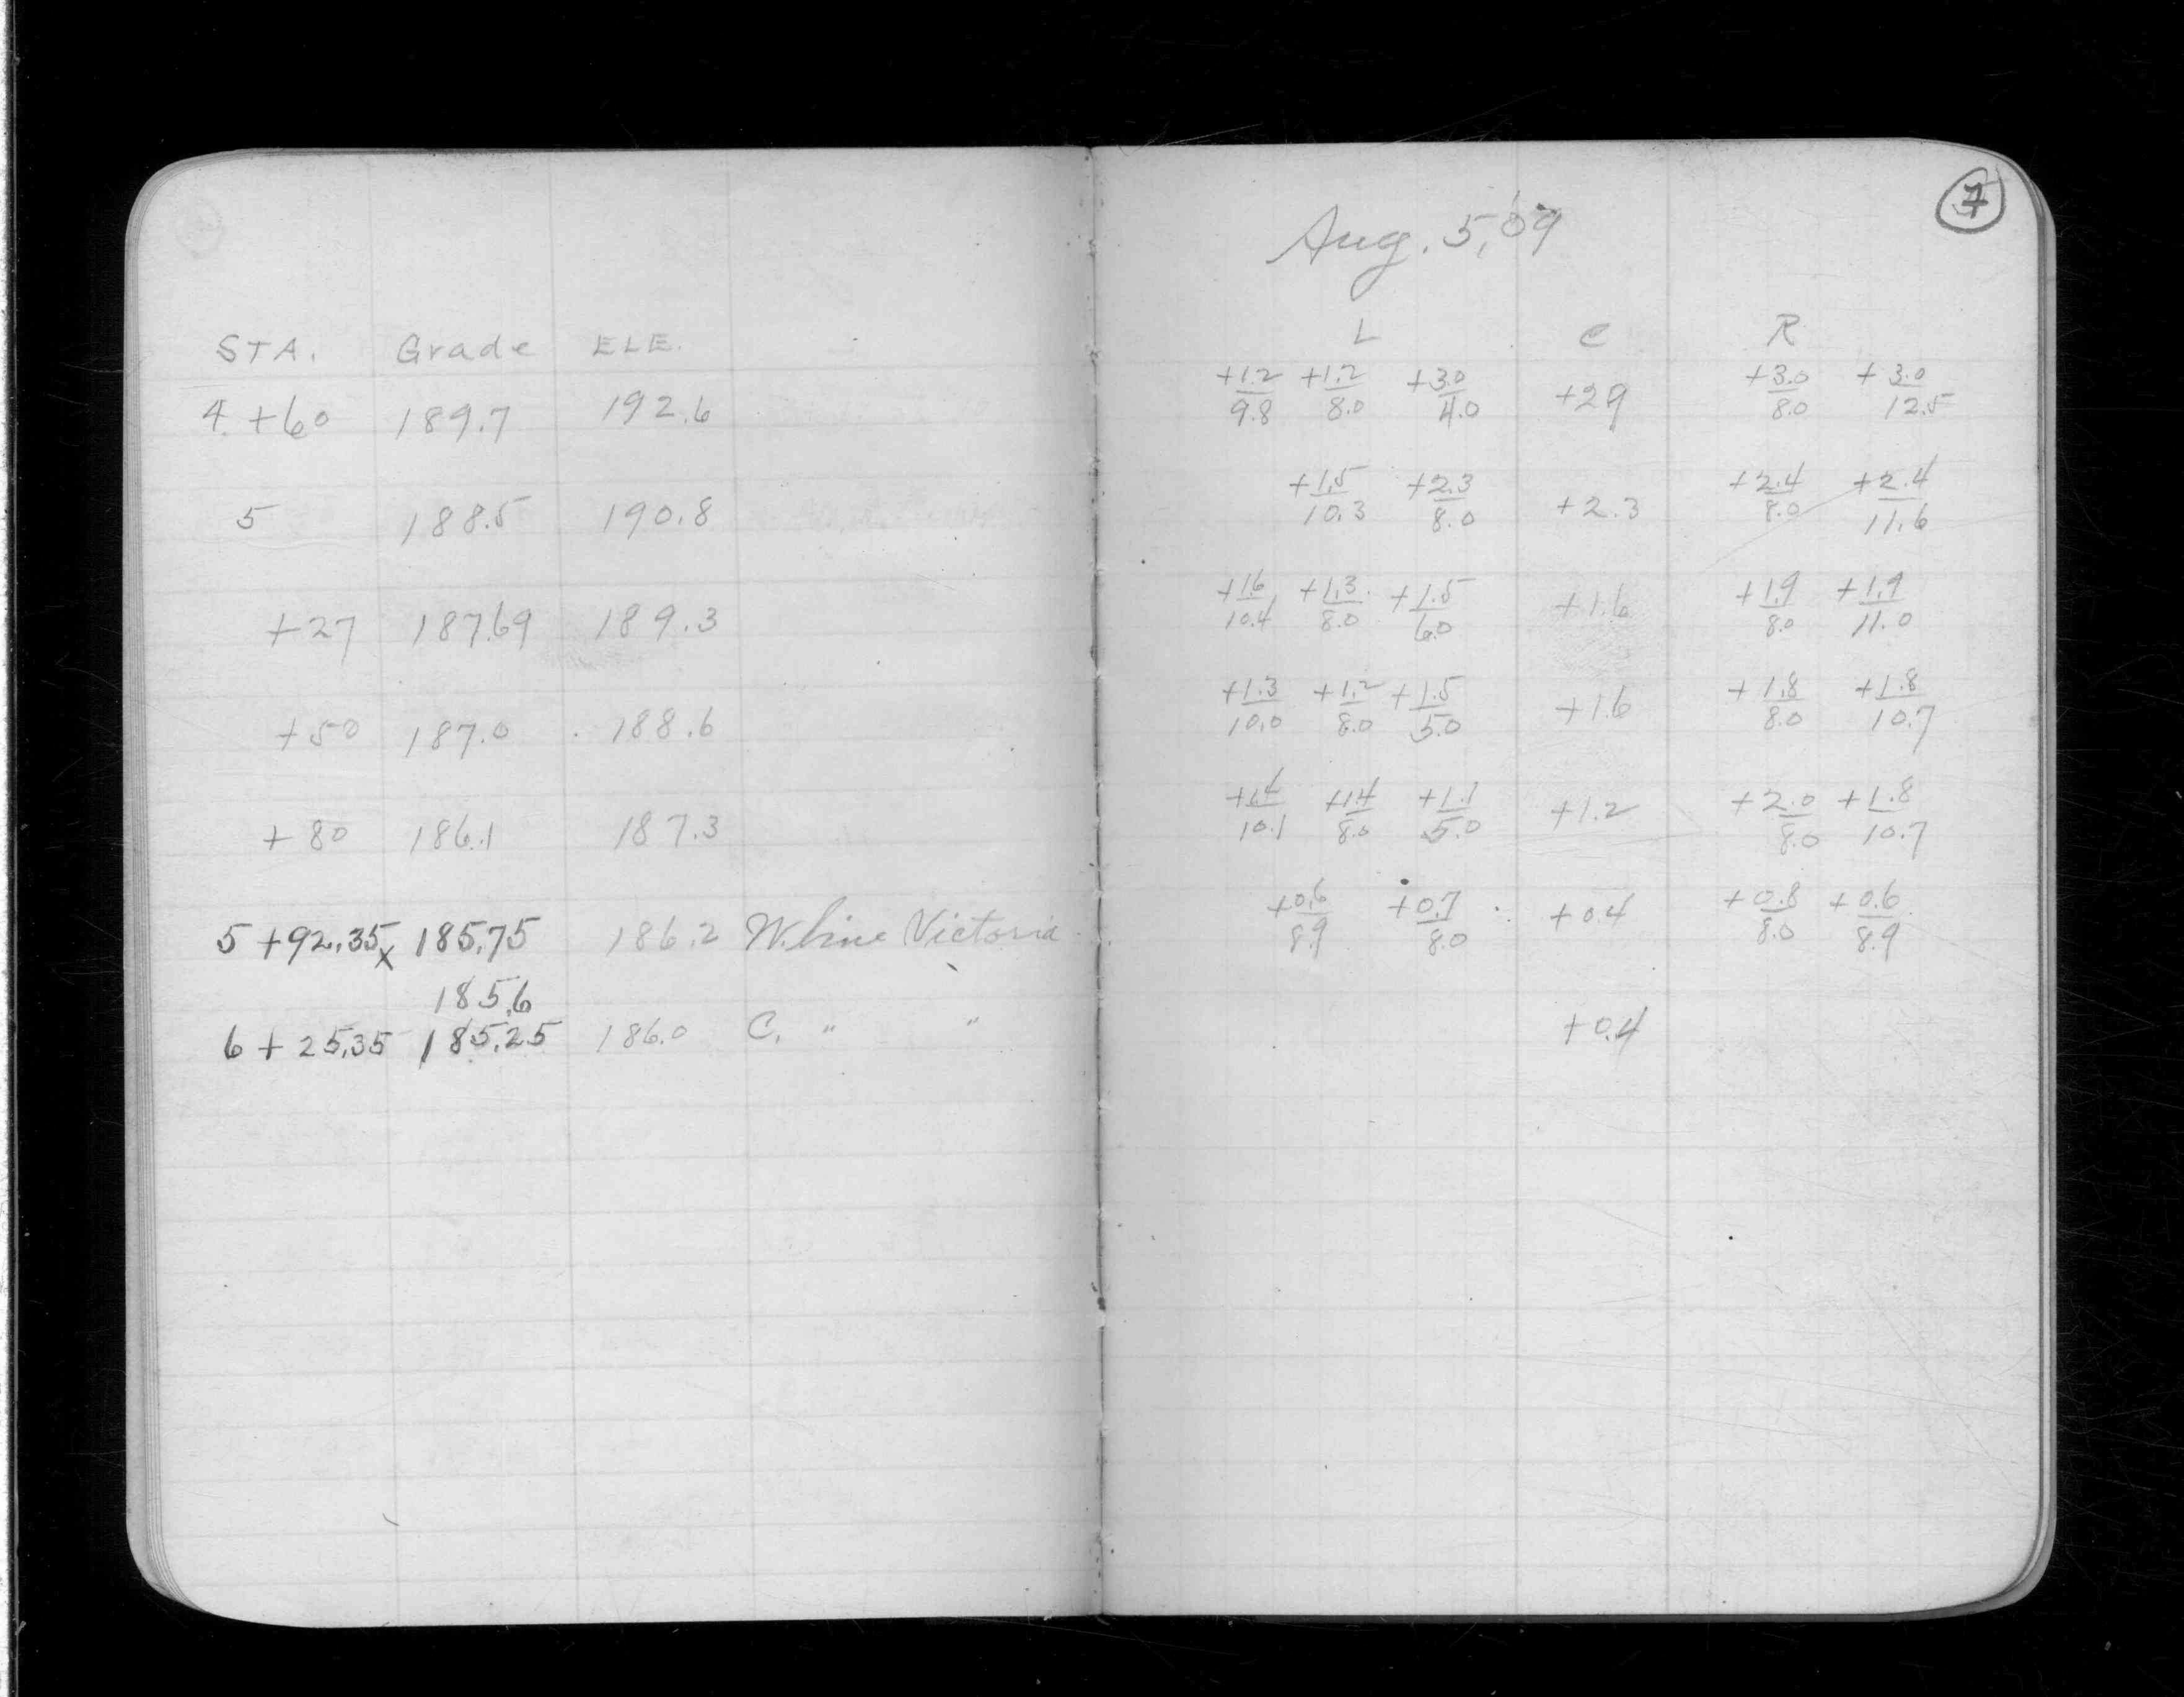 7
Aug. 5, '09
STA. Grade ELE. L C R
4 +60 189.7 192.6 +1.2/9.8 +1.2/8.0 +3.0/4.0 +2.9 +3.0/8.0 +3.0/12.5
5 188.5 190.8 +1.5/10.3 +2.3/8.0 +2.3 +2.4/8.0 +2.4/11.6
+27 187.69 189.3 +1.6/10.4 +1.3/8.0 +1.5/6.0 +1.6 +1.9/8.0 +1.9/11.0
+50 187.0 188.6 +1.3/10.0 +1.2/8.0 +1.5/5.0 +1.6 +1.8/8.0 +1.8/10.7
+80 186.1 187.3 +1.4/10.1 +1.4/8.0 +1.1/5.0 +1.2 +2.0/8.0 +1.8/10.7
5 +92.35 x 185.75 186.2 W. line Victoria +0.6/8.9 +0.7/8.0 +0.4 +0.8/8.0 +0.6/8.9
185.6
6 + 25.35 185.25 186.0 C. " " +0.4